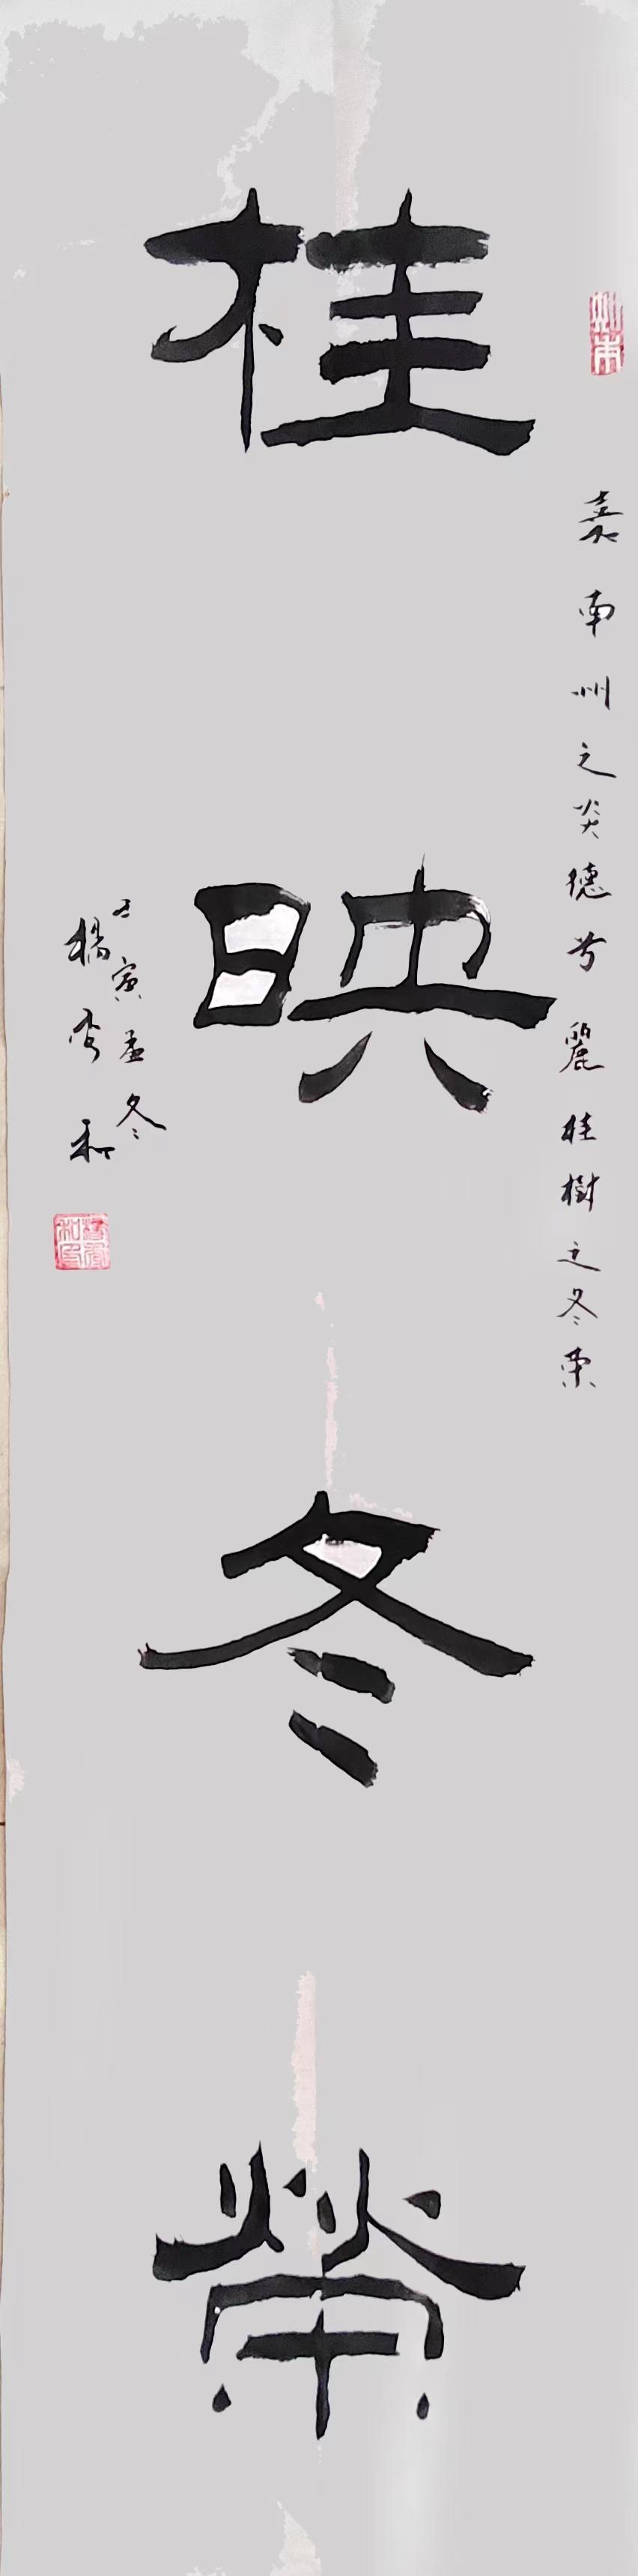 嘉南州之炎德兮麗桂樹之冬荣
桂映冬榮
壬寅孟冬
楊
和